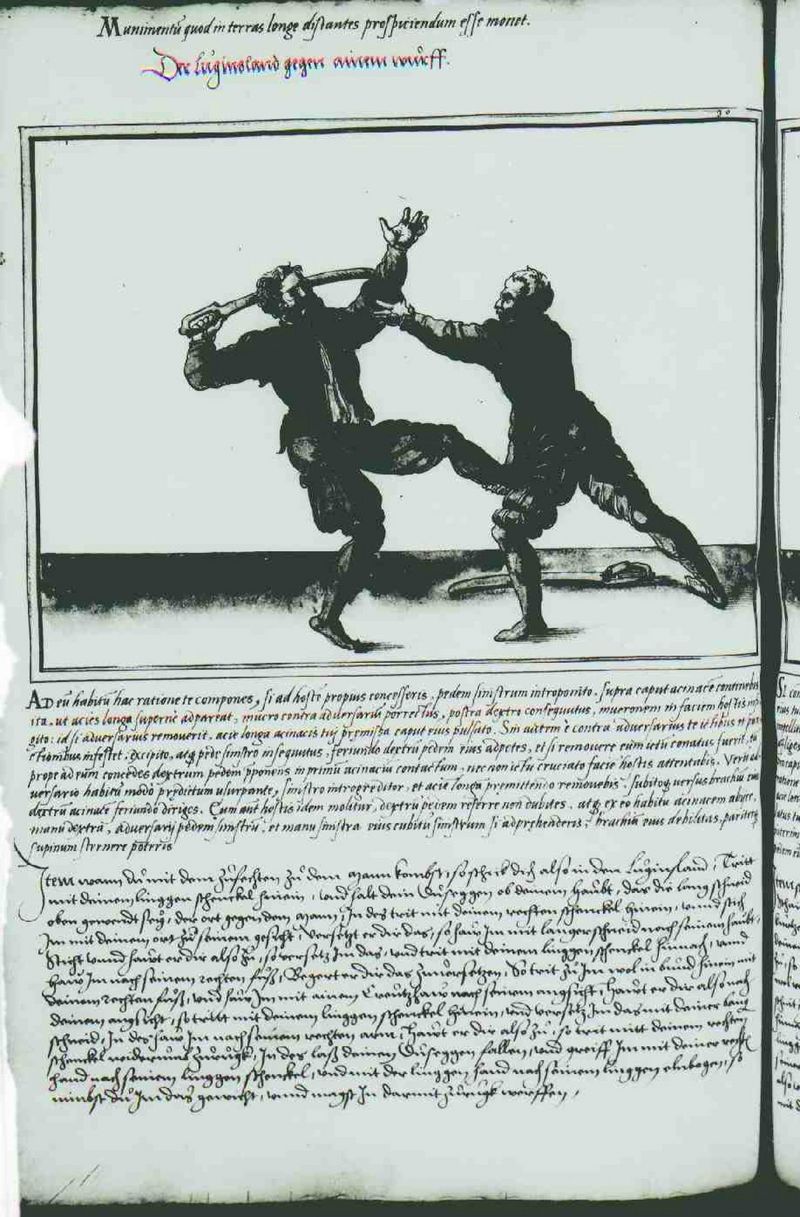 Munimentũ quod in terras longe distantes prospiciendum esse monet.
Der Luginsland gegen ainem wurff.
AD eũ habitũ hac ratione te compones, si ad hostẽ propius concesseris, pedem sinistrum introponito, supra caput acinacẽ contineb
ita, ut acies longa superne adpareat, mucro contra adversariũ porrectus, postea dextro consequutus, mucronem in faciem hostis
gito: id si adversarius removerit, acie longa acinacis tui premissa caput eius pulsato. Sin autem è contra adversarius te ictibus et
ctionibus infestet, excipito, atq; pede sinistro insequutus, feriundo dextrũ pedem eius adpetes, et si removere eum ictũ conatus fuerit,
prope adrum concedes dextrum pedem pponens in primũ acinaciũ contactum, nec non ictu cruciato facie hostis attentabis. Verũ
versario habitũ modo predictum usurpante, sinistro introgreditor, et acie longa premittendo removebis, subitoq; versus brachiũ
dextrũ acinace feriundo diriges. Cum aut hostis idem molitur, dextrũ pedem referre non dubites, atq; ex eo habitu acinacem abijce,
manu dextra, adversarij pedem sinistrũ, et manu sinistra eius cubitũ sinistrum si adprehenderis, brachiũ eius debilitas, pariterq;
supinum sternere poteris
Item wann du mit dem zufechten zu dem mann kombst, so schick dich also in den Luginsland, Tritt
mit deinem linggen schenckel hinein, unnd halt dein Duseggen ob deinem haubt, das die lang schneid
oben gewendt sey, der ort gegen dem mann, In des trit mit deinem rechten schenckel hinein, unnd stich
Im mit deinem ort zu seinem gesicht, Versetzt er dir das, so haw Im mit langer schneid nach seinem haubt,
Sticht unnd hawt er dir also zu, so versetz Im das, und trit mit deinem linggen schenckel hinnach, unnd
haw Im nach seinem rechten fuß, Begert er dir das zuversetzen, So trit zu Im wol in bund hinein mit
deinem rechten fuß, und haw Im mit ainem Creutzhaw nach seinem angsicht, hawt er dir also nach
deinem angsicht, so tritt mit deinem linggen schenckel hinein, und versetz Im das mit deiner lang
schneid, In des haw Im nach seinem rechten arm, hawt er dir also zu, so trit mitt deinem rechten
schenckel widerumb zurugk, In des laß deinen Duseggen fallen, und greiff Im mit deiner recht
hand nach seinem linggen schenckel, und mit der linggen hand nach seinem linggen elnbogen, so
nimbst du Im das gewicht, unnd magst In darmit zurugk werffen,